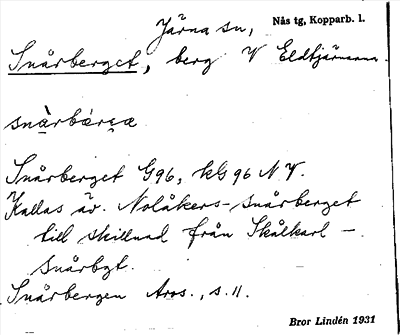 Järna sn, Nås tg, Kopparb. l.
Snårberget, berg V Eldtjärnarna.
snàrbǽrɛæ
Snårberget G96, kG 96 NV.
Kallas äv. Nolåkers-snårberget
till skillnad från Skålkarl-
snårbgt.
Snårbergen Aros., s. 11.
Bror Lindén 1931